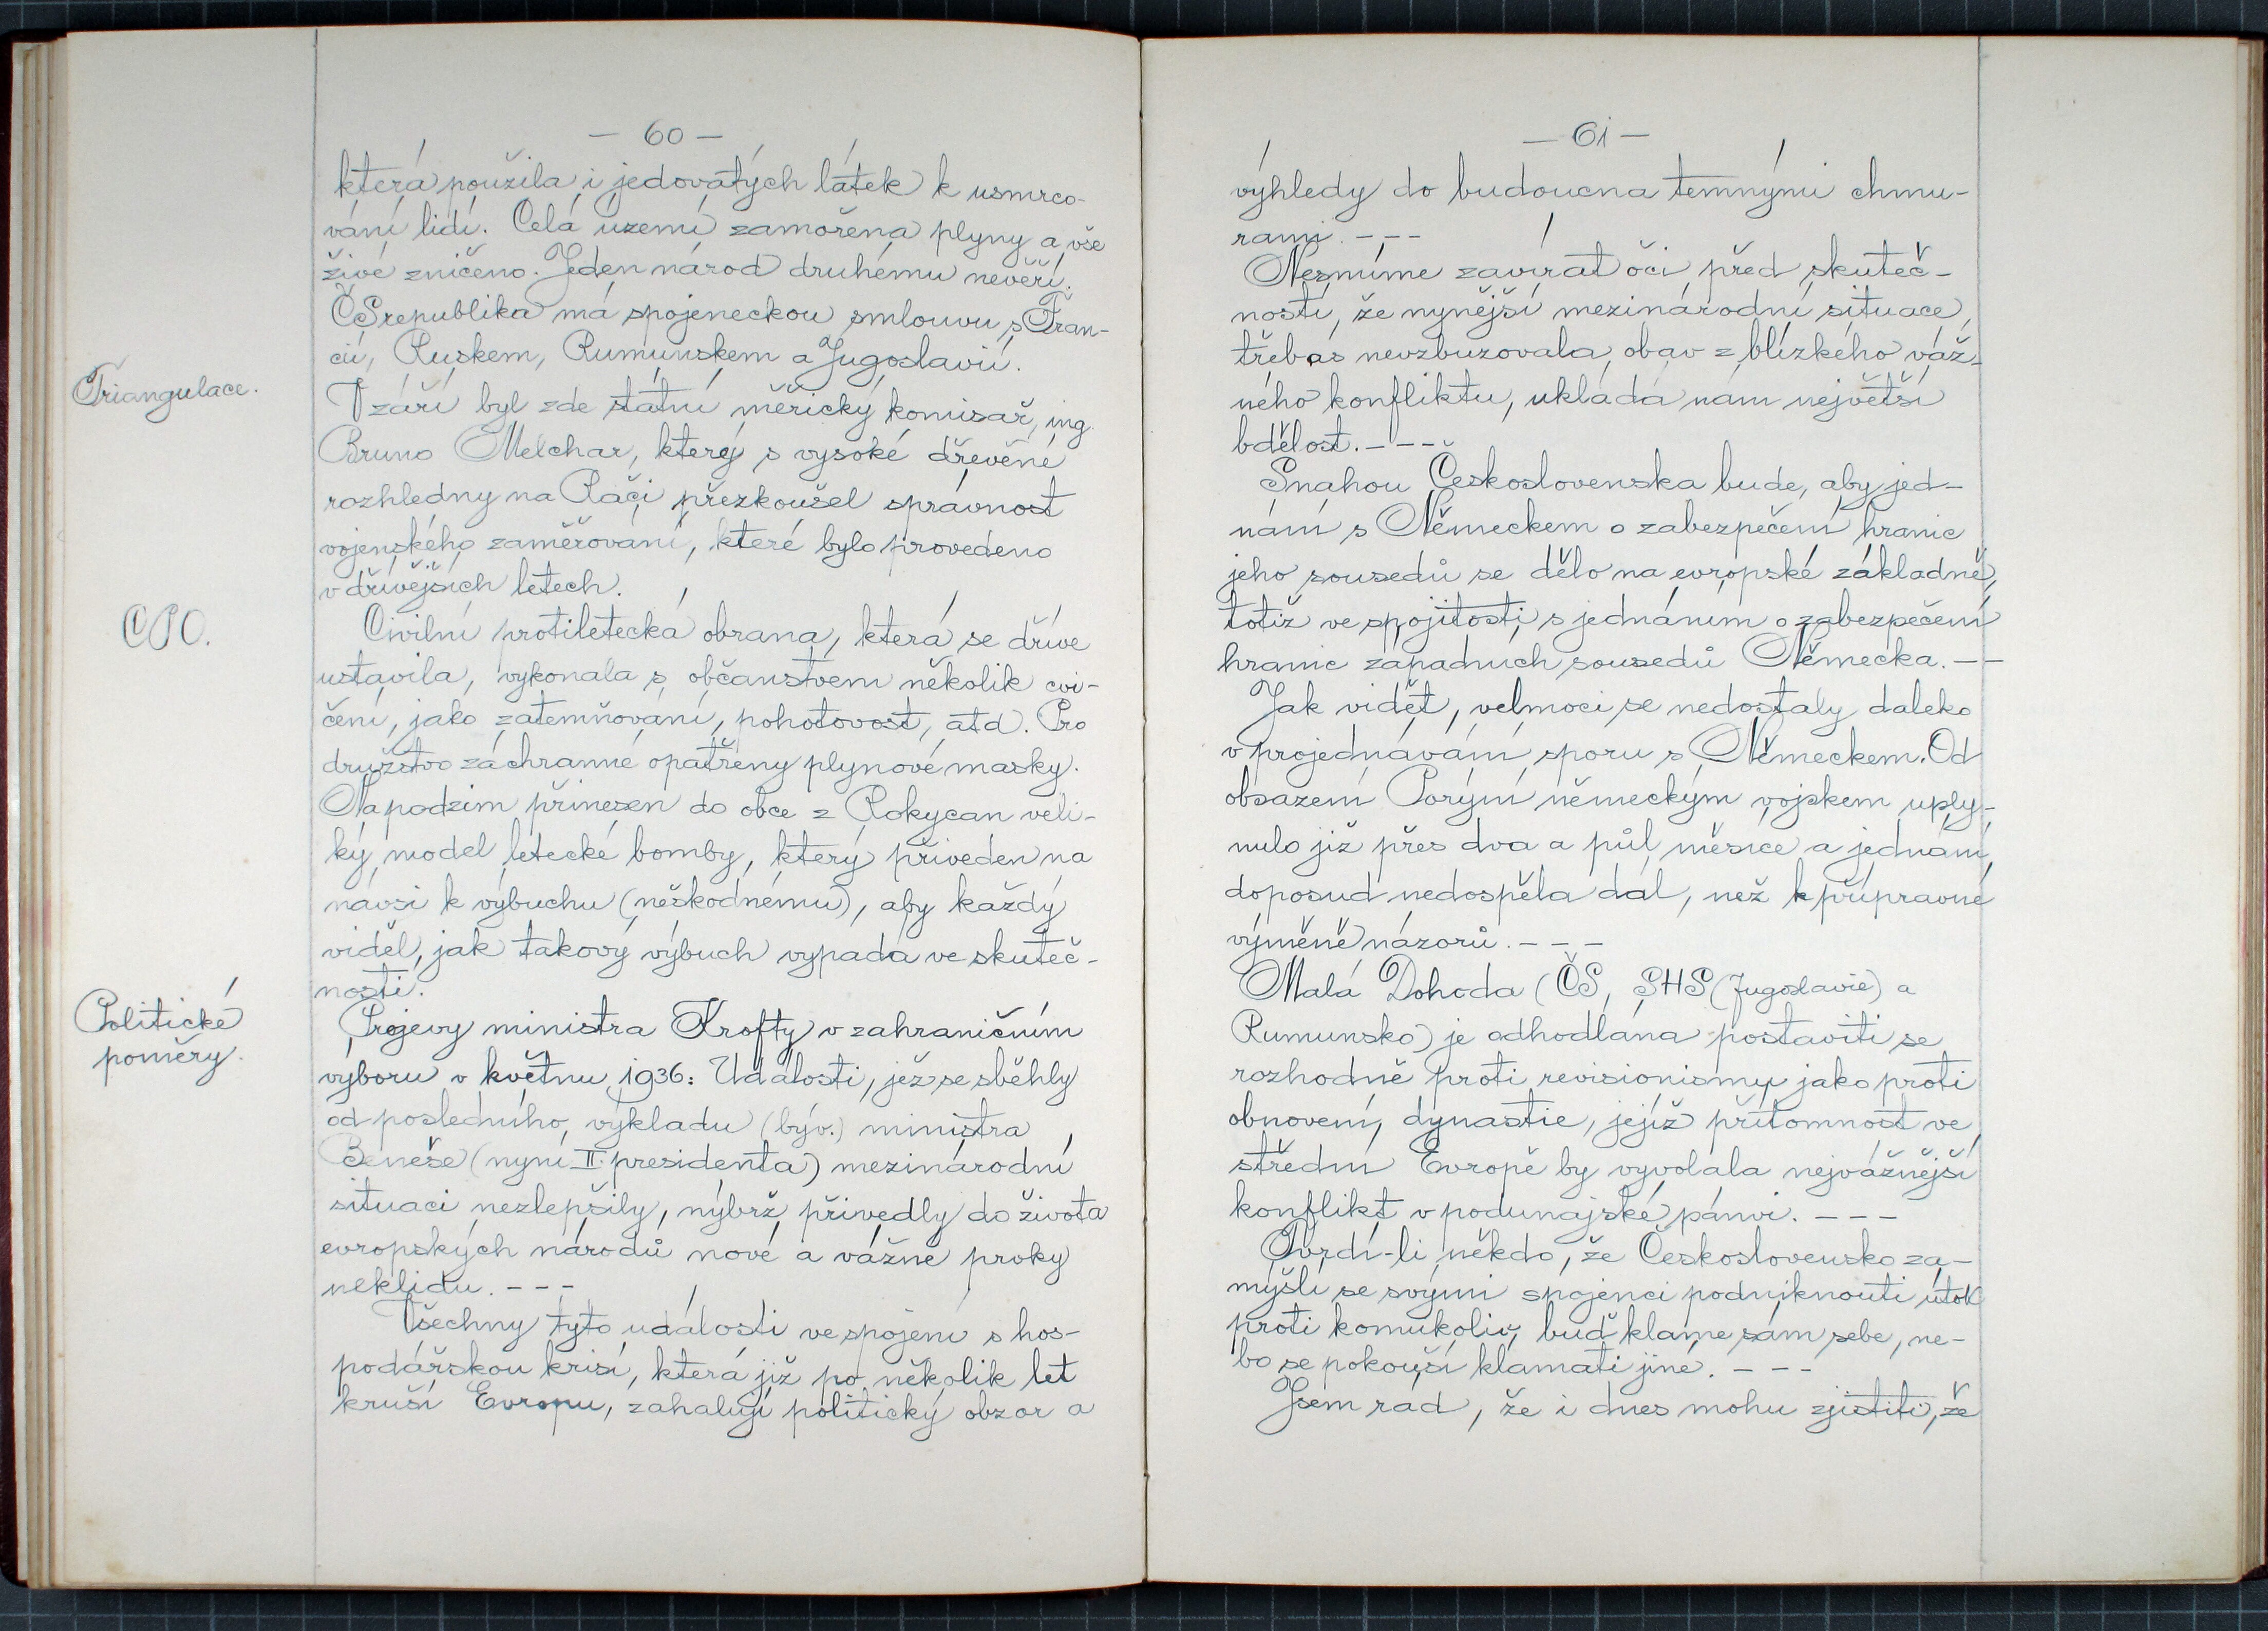 — 60 —
která použila i jedovatých látek k usmrco-
vání lidí. Celá území zamořena plyny a vše
živé zničeno. Jeden národ druhému nevěří.
ČSrepublika má spojeneckou smlouvu s Fran-
cií, Ruskem, Rumunskem a Jugoslavií.
Triangulace.
V září byl zde státní měřický komisař, ing.
Bruno Melchar, který s vysoké dřevěné
rozhledny na Rači přezkoušel správnost
vojenského zaměřování, které bylo provedeno
v dřívějších letech.
CPO.
Civilní protiletecká obrana, která se dříve
ustavila, vykonala s občanstvem několik cvi-
čení, jako zatemňování, pohotovost, atd. Pro
družstvo záchranné opatřeny plynové masky.
Na podzim přinesen do obce z Rokycan veli-
ký model letecké bomby, který přiveden na
návsi k výbuchu (neškodnému), aby každý
viděl, jak takový výbuch vypadá ve skuteč-
nosti.
Politické
poměry.
Projevy ministra Krofty v zahraničním
výboru v květnu 1936: Události, jež se sběhly
od posledního výkladu (býv.) ministra
Beneše (nyní II. presidenta) mezinárodní
situaci nezlepšily, nýbrž přivedly do života
evropských národů nové a vážné prvky
neklidu. - - -
Všechny tyto události ve spojení s hos-
podářskou krisí, která již po několik let
kruší Evropu, zahalují politický obzor a
— 61 —
výhledy do budoucna temnými chmu-
rami. - - -
Nesmíme zavírat oči před skuteč-
ností, že nynější mezinárodní situace,
třebas nevzbuzovala obav z blízkého váž-
ného konfliktu, ukládá nám největší
bdělost. - - -
Snahou Československa bude, aby jed-
nání s Německem o zabezpečení hranic
jeho sousedů se dělo na evropské základně,
totiž ve spojitosti s jednáním o zabezpečení
hranic západních sousedů Německa. - -
Jak vidět, velmoci se nedostaly daleko
v projednávání sporu s Německem. Od
obsazení Porýní německým vojskem uply-
nulo již přes dva a půl měsíce a jednání
doposud nedospěla dál, než k přípravné
výměně názorů. - - -
Malá Dohoda (ČS, SHS (Jugoslavie) a
Rumunsko) je odhodlána postaviti se
rozhodně proti revisionismu jako proti
obnovení dynastie, jejíž přítomnost ve
střední Evropě by vyvolala nejvážnější
konflikt v podunajské pánvi. - - -
Tvrdí-li někdo, že Československo za-
mýšlí se svými spojenci podniknouti útok
proti komukoliv, buď klame sám sebe, ne-
bo se pokouší klamati jiné. - - -
Jsem rád, že i dnes mohu zjistiti, že